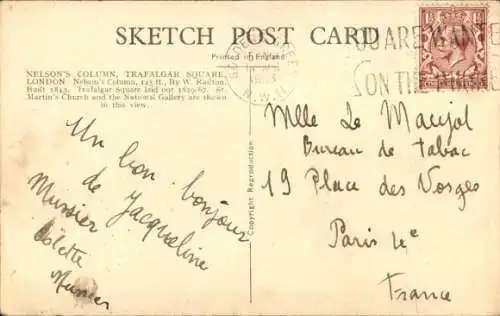 SKETCH POST CARD
Printed in England
YOU ARE WANTED
ON THE
N.W.11.
NELSON'S COLUMN, TRAFALGAR SQUARE,
LONDON. Nelson's Column, 145 ft., By W. Railton,
Built 1843. Trafalgar Square laid out 1829/67. St.
Martin's Church and the National Gallery are shown
in this view.
Copyright Reproduction
Un bon bonjour
de Jacqueline
Mussier
Odette
Mussier
Mlle Le
Bureau de tabac
19 Place des Vosges
Paris 4e
France